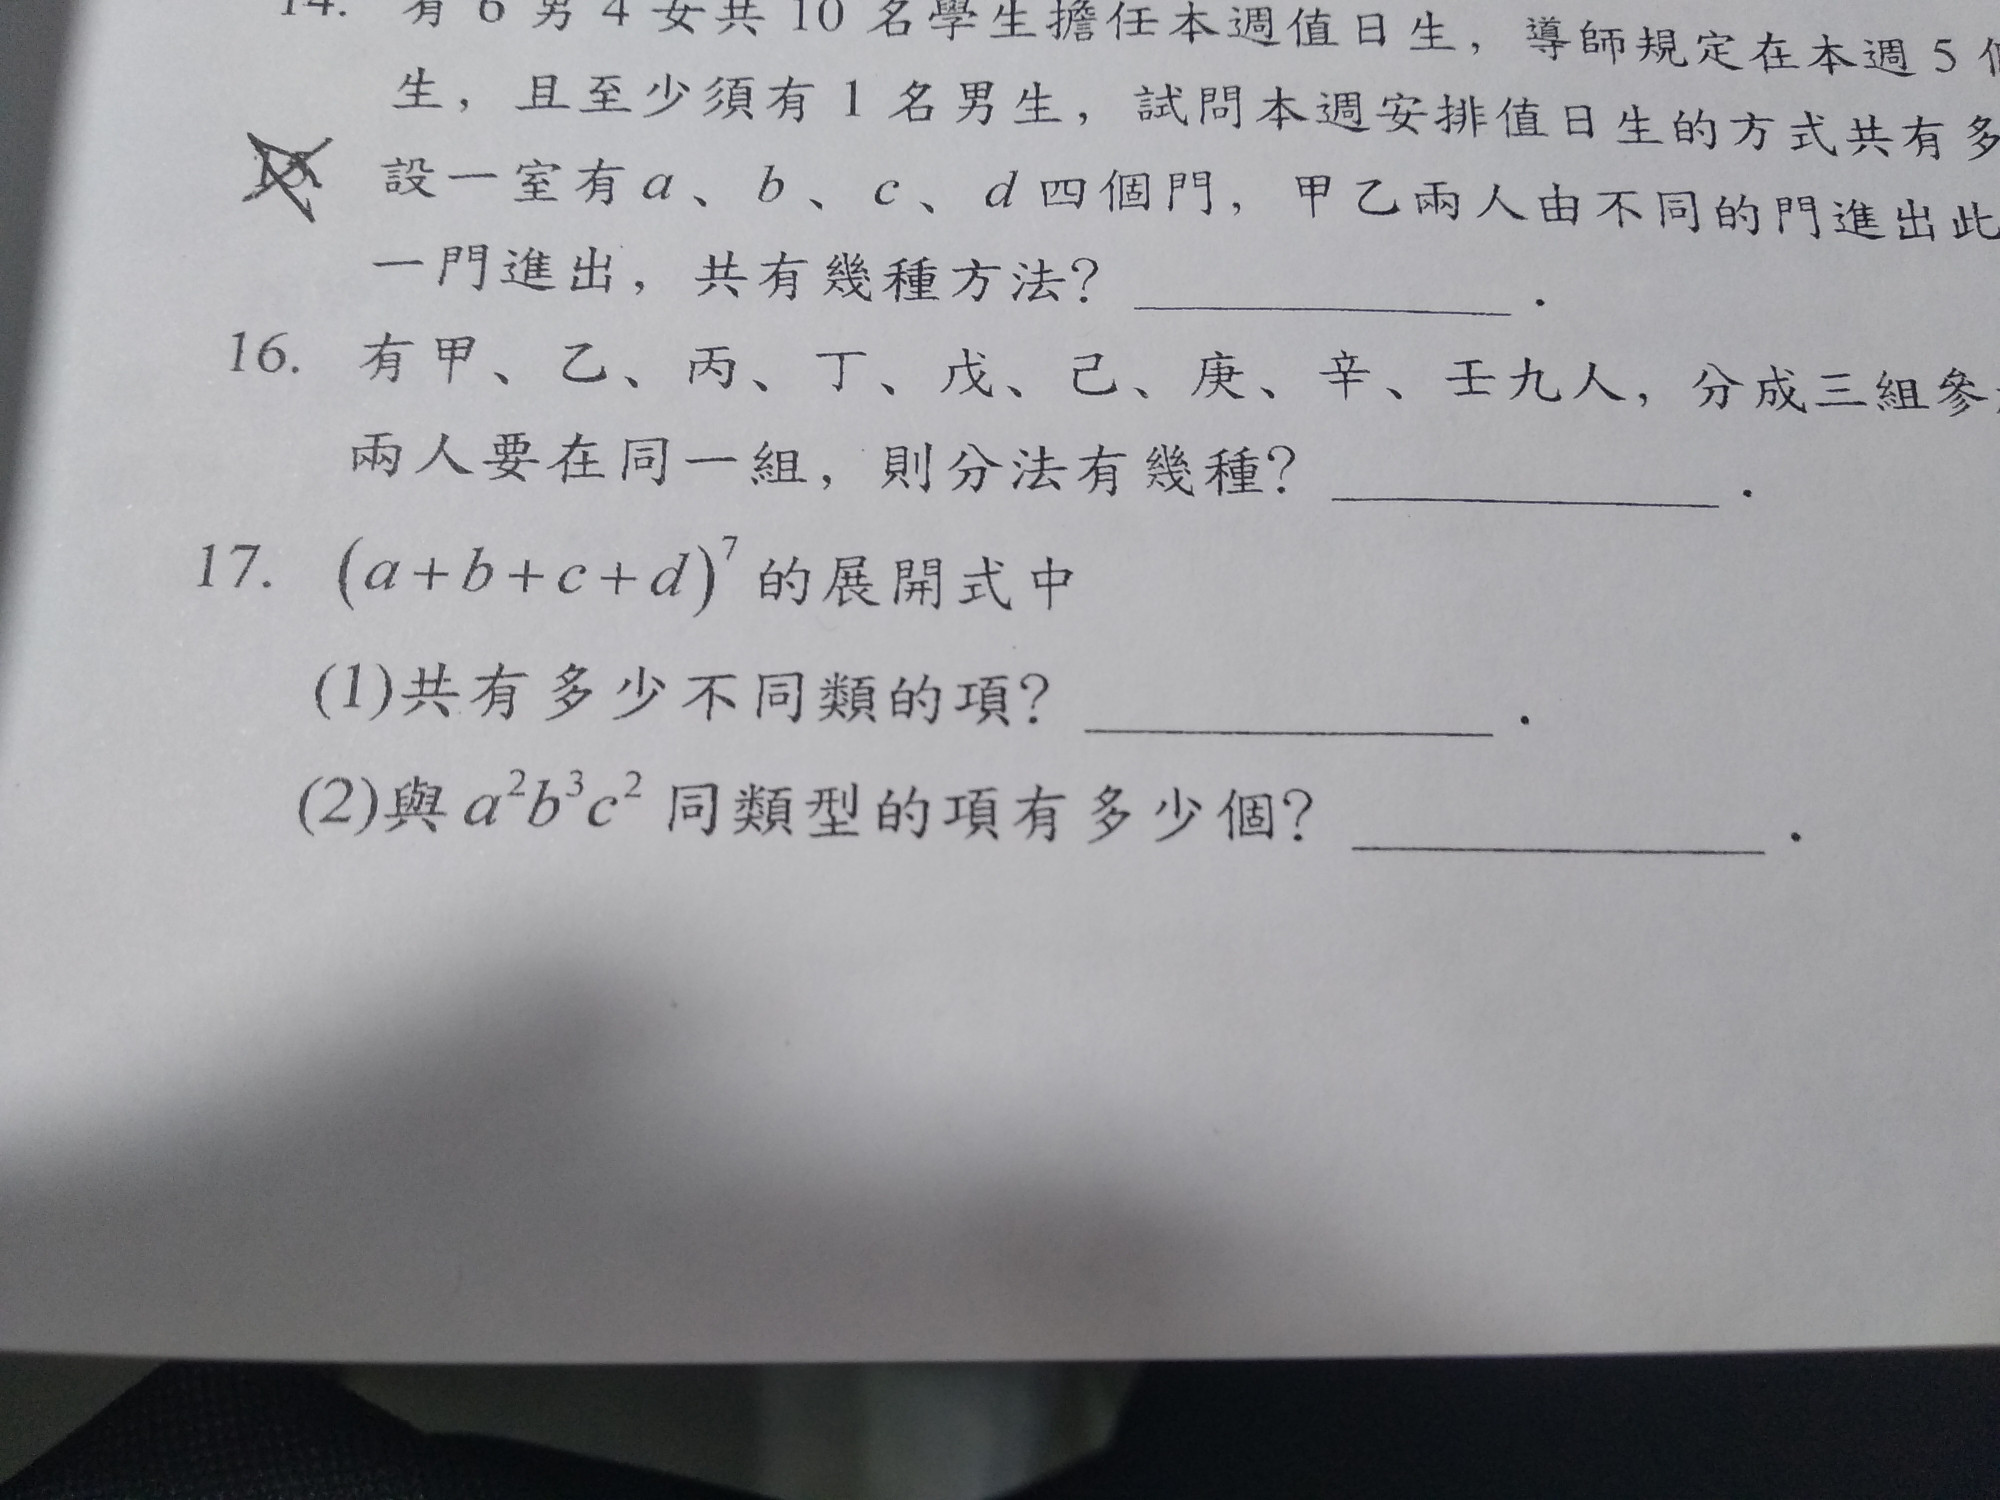 14. 有 6 男 4 女共 10 名學生擔任本週值日生，導師規定在本週 5
生，且至少須有 1 名男生，試問本週安排值日生的方式共有多
設一室有 a、b、c、d 四個門，甲乙兩人由不同的門進出此
一門進出，共有幾種方法？ ________ .
16. 有甲、乙、丙、丁、戊、己、庚、辛、壬九人，分成三組參
兩人要在同一組，則分法有幾種？ ________ .
17. (a+b+c+d)⁷ 的展開式中
(1)共有多少不同類的項？ ________ .
(2)與 a²b³c² 同類型的項有多少個？ ________ .